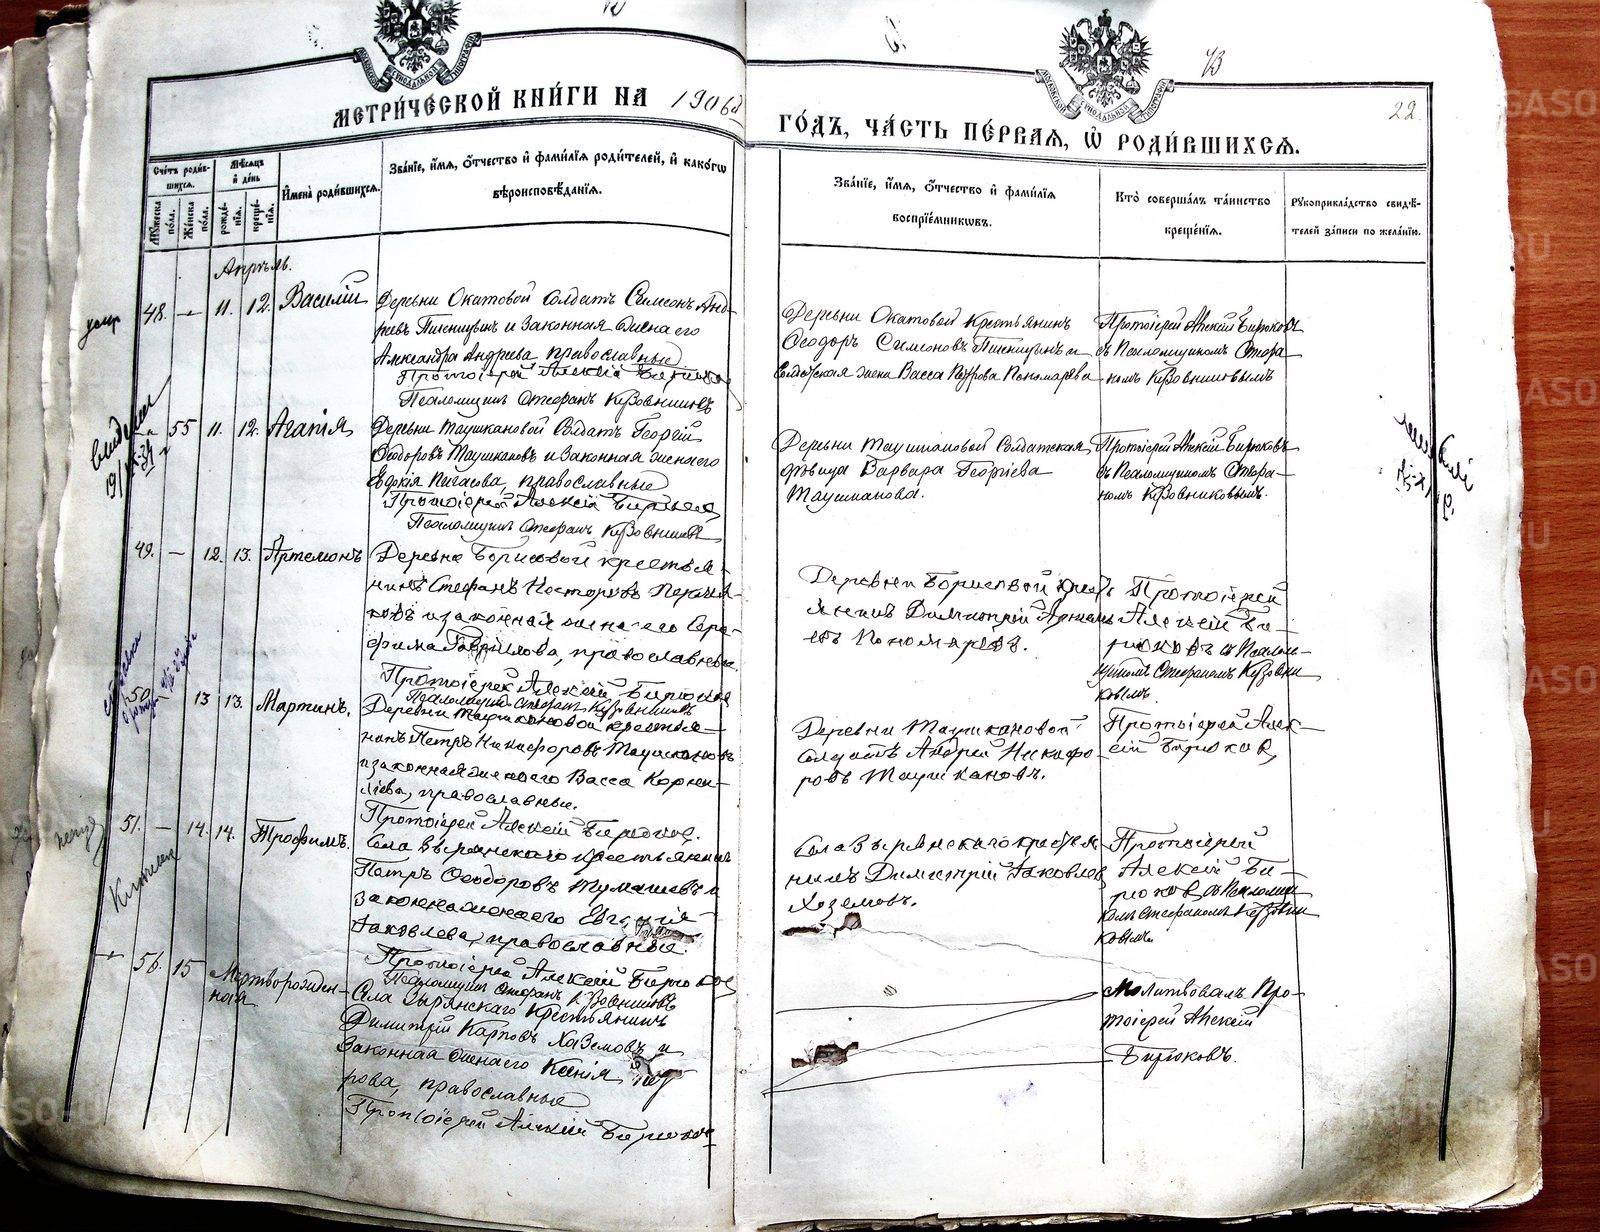 МЕТРИ́ЧЕСКОЙ КНИ́ГИ НА 1906й
ГО́ДЪ, ЧА́СТЬ ПЕ́РВАЯ, Ѡ҆ РОДИ́ВШИХСѦ.
22.
Счетъ роди́вшихсѧ.
Мѣ́сѧцъ и҆ де́нь
Мꙋ́жеска по́ла.
Же́нска по́ла.
рожде́нїѧ.
креще́нїѧ.
И҆мена̀ роди́вшихсѧ.
Зва́нїе, и҆́мѧ, ѻ҆́тчество и҆ фами́лїѧ роди́телей, и҆ како́гѡ
вѣроисповѣ́данїѧ.
Зва́нїе, и҆́мѧ, ѻ҆́тчество и҆ фами́лїѧ
воспрїе́мникѡвъ.
Кто̀ соверша́лъ та́инство
креще́нїѧ.
Рꙋкоприкла́дство свидѣ́-
телей за́писи по жела́нїю.
Апрѣль.
48. — 11. 12. Василій
Деревни Окатовой солдатъ Симеонъ Анд-
реевъ Пшеницынъ и законная жена его
Александра Андреева, православные
Протоіерей Алексій Бирюковъ
Псаломщикъ Стефанъ Кузовниковъ
Деревни Окатовой Крестьянинъ
Ѳеодоръ Симеоновъ Пшеницынъ и
Солдатская жена Васса Петрова Пономарева
Протоіерей Алексій Бирюковъ
съ Псаломщикомъ Стефа-
номъ Кузовниковымъ
55 11. 12. Агапія
Деревни Таушкановой Солдатъ Георгій
Ѳеодоровъ Таушкановъ и законная жена его
Евдокія Пигасова, православные
Протоіерей Алексій Бирюковъ
Псаломщикъ Стефанъ Кузовниковъ
Деревни Таушкановой Солдатская
дѣвица Варвара Георгіева
Таушканова.
Протоіерей Алексій Бирюковъ
съ Псаломщикомъ Стефа-
номъ Кузовниковымъ.
49. — 12. 13. Артемонъ
Деревни Борисовой крестья-
нинъ Стефанъ Несторовъ
ковъ и законная жена его Сера-
фима Гавриилова, православные
Протоіерей Алексій Бирюковъ
Псаломщикъ Стефанъ Кузовниковъ
Деревни Борисовой крест-
янинъ Димитрій Артемь-
евъ Пономаревъ.
Протоіерей
Алексій Би-
рюковъ и Псалом-
щикомъ Стефаномъ Кузовни
ковымъ
50 13 13. Мартинъ.
Деревни Таушкановой крестья-
нинъ Петръ Никифоровъ Таушкановъ
и законная жена его Васса Корни-
ліева, православные.
Протоіерей Алексій Бирюковъ.
Деревни Таушкановой
Солдатъ Андрей Никифо-
ровъ Таушкановъ.
Протоіерей Алек-
сій Бирюковъ
51. — 14. 14. Трофимъ.
Села Зырянскаго крестьянинъ
Петръ Ѳеодоровъ Тумашевъ и
законная жена его Евгенія
Іаковлева, православные.
Протоіерей Алексій Бирюковъ
Псаломщикъ Стефанъ Кузовниковъ
Села Зырянскаго крестья
нинъ Димитрій Іаковлев
Хаземовъ.
Протоіерей
Алексій Би-
рюковъ съ Псаломщи
комъ Стефаномъ Кузовни
ковымъ.
56. 15 Мертворожден-
ная
Села Зырянскаго Крестьянинъ
Димитрій Карповъ Хаземовъ и
законная жена его Ксенія
рова, православные
Протоіерей Алексій Бирюковъ
Молитвовалъ Про-
тоіерей Алексій
Бирюковъ.